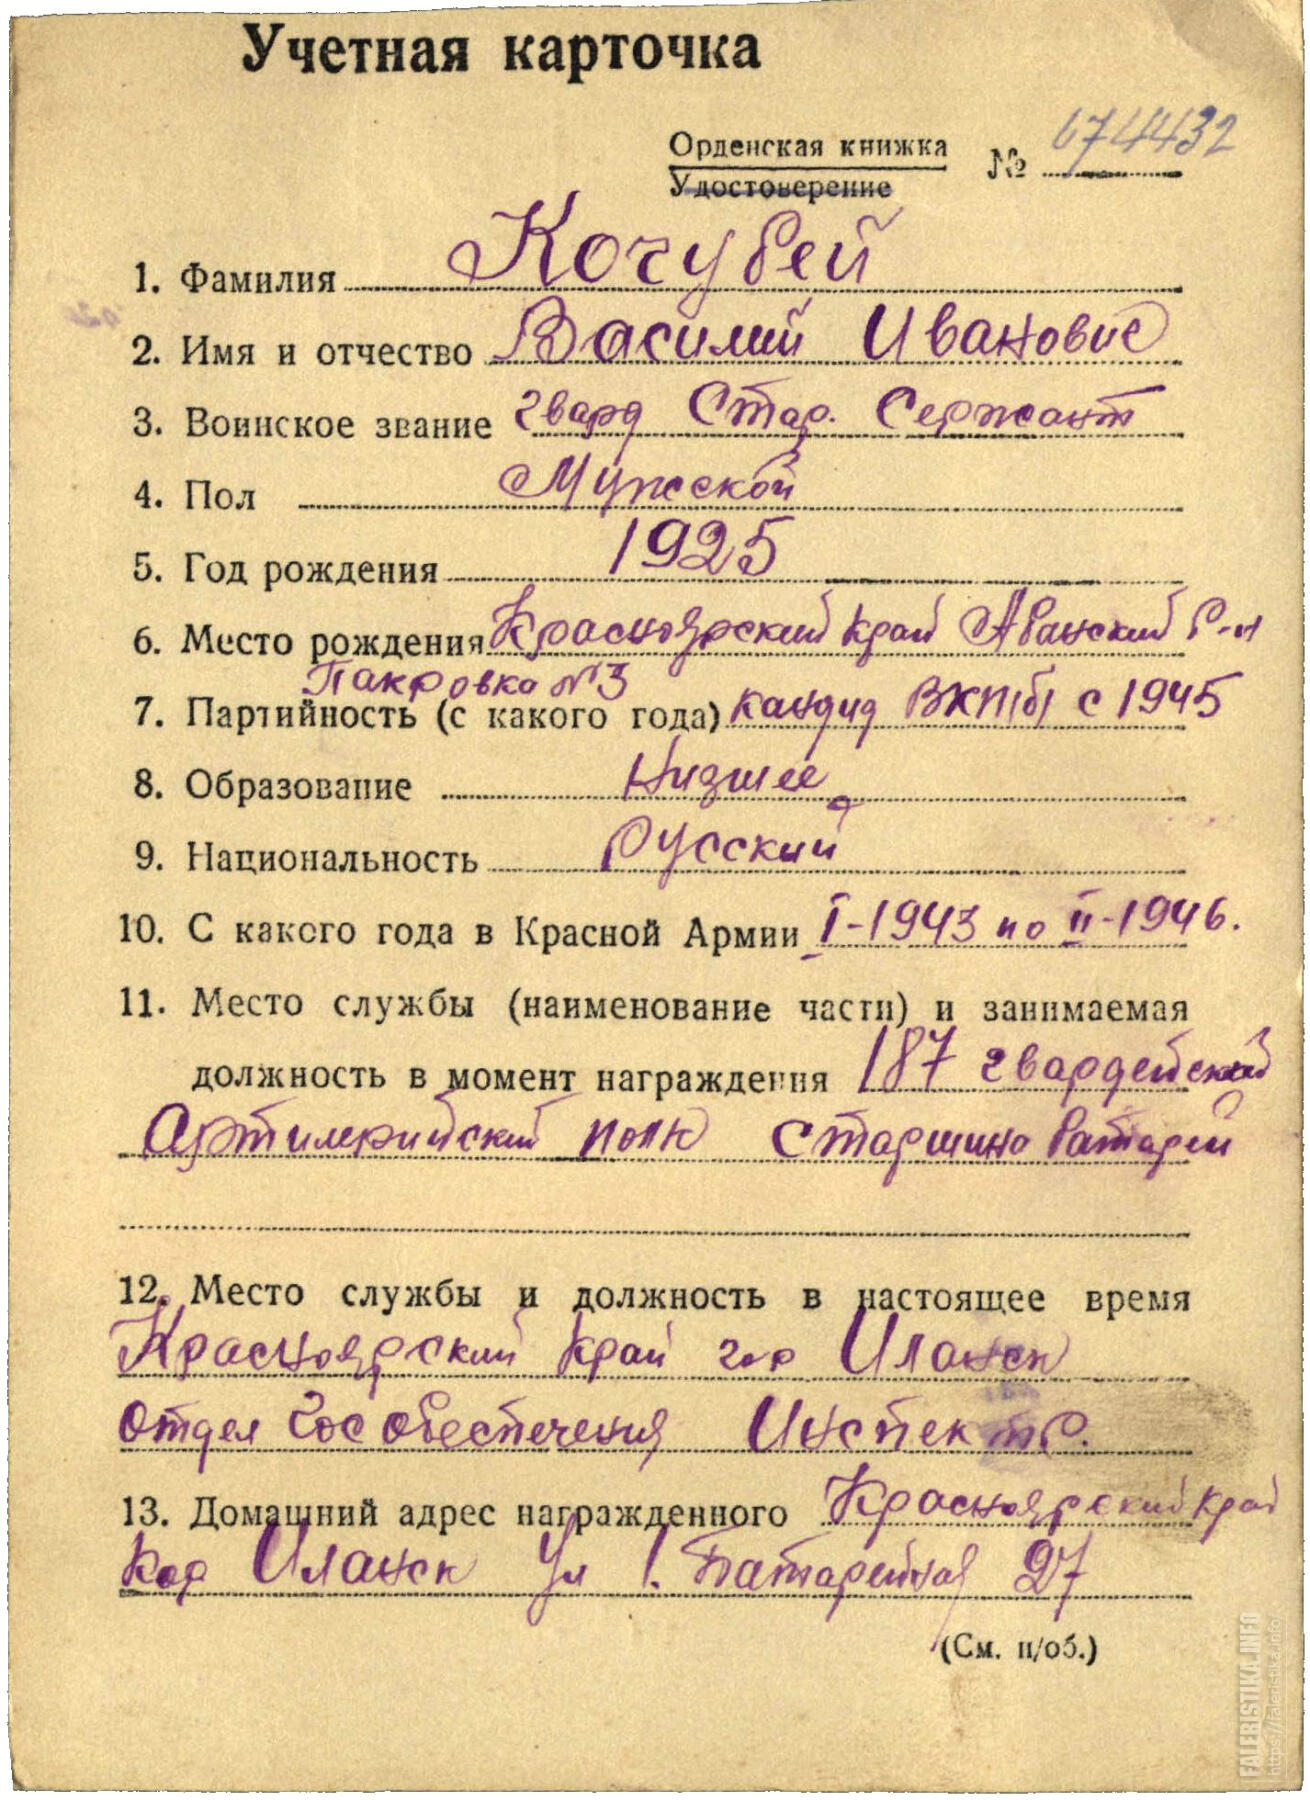 Учетная карточка
Орденская книжка № 674432
Удостоверение
1. Фамилия Кочубей
2. Имя и отчество Василий Иванович
3. Воинское звание гвард Стар. Сержант
4. Пол Мужской
5. Год рождения 1925
6. Место рождения Красноярский край Абанский р-н
Пакровка №3
7. Партийность (с какого года) кандид ВКП(б) с 1945
8. Образование Низшее
9. Национальность Русский
10. С какого года в Красной Армии I-1943 по II-1946.
11. Место службы (наименование части) и занимаемая
должность в момент награждения 187 гвардейский
Артилерийский полк Старшина батареи
12. Место службы и должность в настоящее время
Красноярский край гор Иланск
отдел Гособеспечения Инспектр.
13. Домашний адрес награжденного Красноярский край
Иланск ул 1. Батарейная 27
(См. н/об.)
FALERISTIKA.INFO
https://faleristika.info/